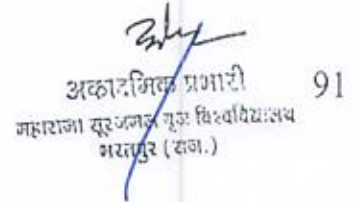 अकादमिक प्रभारी
91
महाराजा सूरजमल बृज विश्वविद्यालय
भरतपुर (राज.)